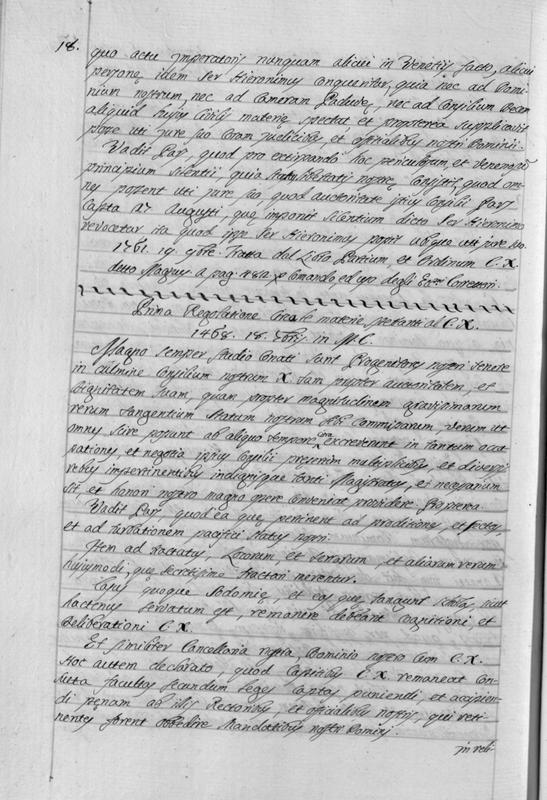 18.
quo actu Imperatoris nunquam alicui in Venetijs facto, alicui
personę idem Ser Hieronimus conqueritur, quia nec ad Domi-
nium nostrum, nec ad Cameram Paduę, nec ad Consilium Decem
aliquid huius Civilis materię spectat et propterea supplicavit
posse uti jure suo coram judicibus, et officialibus nostri Dominii.
Vadit Pars, quod pro extirpando hoc periculosum, et venenosum
principium silentii, quia status libertatis nostrę consistit, quod om-
nes possent uti jure suo, quod auctoritate istius Consilii Pars
Capta 27 Augusti, que imponit silentium dicto Ser Hieronimo
revocetur ita quod ipse Ser Hieronimus possit ubique uti jure suo.
1761. 19. 9bre. Tratta dal Libro Partium, et Ordinum C. X.
detto Magnus a pag. 182. comando, ed uso degli Ecc.mi Correttori.
Prima Regolatione circa le materie spettanti al C. X.
1468. 18. 7bris. in M. C.
Magno semper studio conati sunt Progenitores nostri tenere
in culmine Consilium nostrum X. tam propter auctoritatem, et
dignitatem suam, quam propter magnitudinem gravissimarum
rerum tangentium statum nostrum sibi commissarum, verum ut
omnes scire possunt ab aliquo tempore citra excreverunt in tantum occu-
pationes, et negotia ipsius Consilii presertim multiplicibus, et diversis
rebus impertinentibus, indignisque tanti Magistratus, et necessarium
sit, et honori nostro magno opere conveniat providere. Propterea
Vadit Pars quod ea quę pertinent ad proditiones, et sectas,
et ad turbationem pacifici status nostri.
Item ad tractatus, Locorum, et terrarum, et aliarum rerum
hujusmodi, quę secretissime tractari merentur.
Casus quoque Sodomię, et ea quę tangunt scholas, sicut
hactenus servatum est, remanere debeant cognitioni, et
deliberationi C. X.
Et similiter Cancellaria nostra, Dominio nostro cum C. X.
Hoc autem declarato, quod Capitibus C. X. remaneat con-
dicta facultas secundum leges captas puniendi, et accipien-
di pęnam ab illis Rectoribus, et officialibus nostris, qui reti-
nentes forent obbedire Mandatibus nostri Dominij.
in reli-